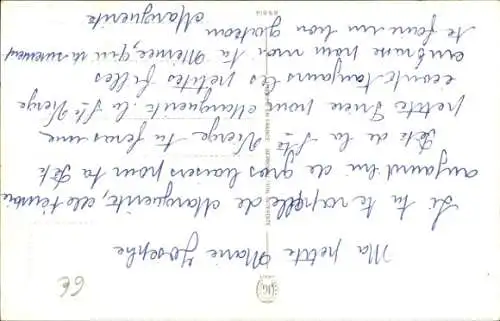 Ma petite Marie Josephe
Si tu te rappelle de Marguerite, elle t'envoie
aujourd'hui de gros baisers pour ta fête
Fête de la Ste Vierge tu feras une
petite Prière pour Marguerite. la Ste Vierge
écoute toujours les petites filles
embrasse pour moi ta Mémée, qui va surement
te faire un bon gateau
Marguerite
6€